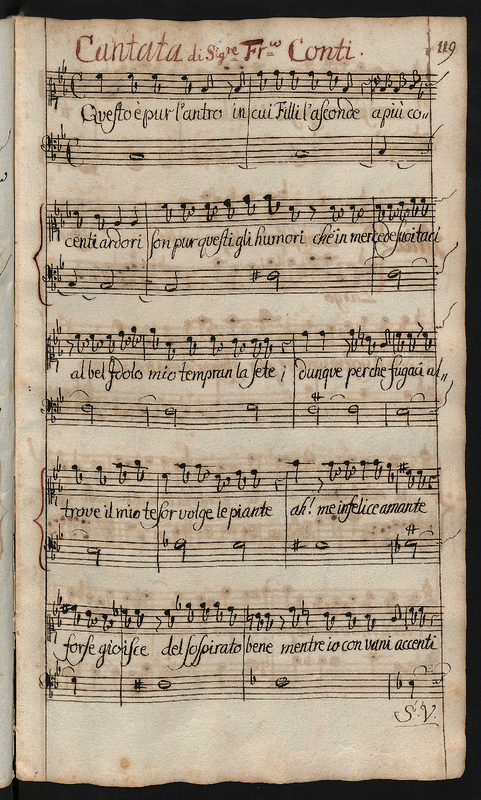 Cantata di Sig.re Fr.co Conti.
119
Questo è pur l'antro in cui Filli l'asconde a più co-
centi ardori son pur questi gli humori che in mercede suoi taci
al bel Idolo mio tempran la sete i dunque perche fugaci al-
trove il mio tesor volge le piante ah! me infelice amante
forse gioisce del sospirato bene mentre io con vani accenti
S. V.